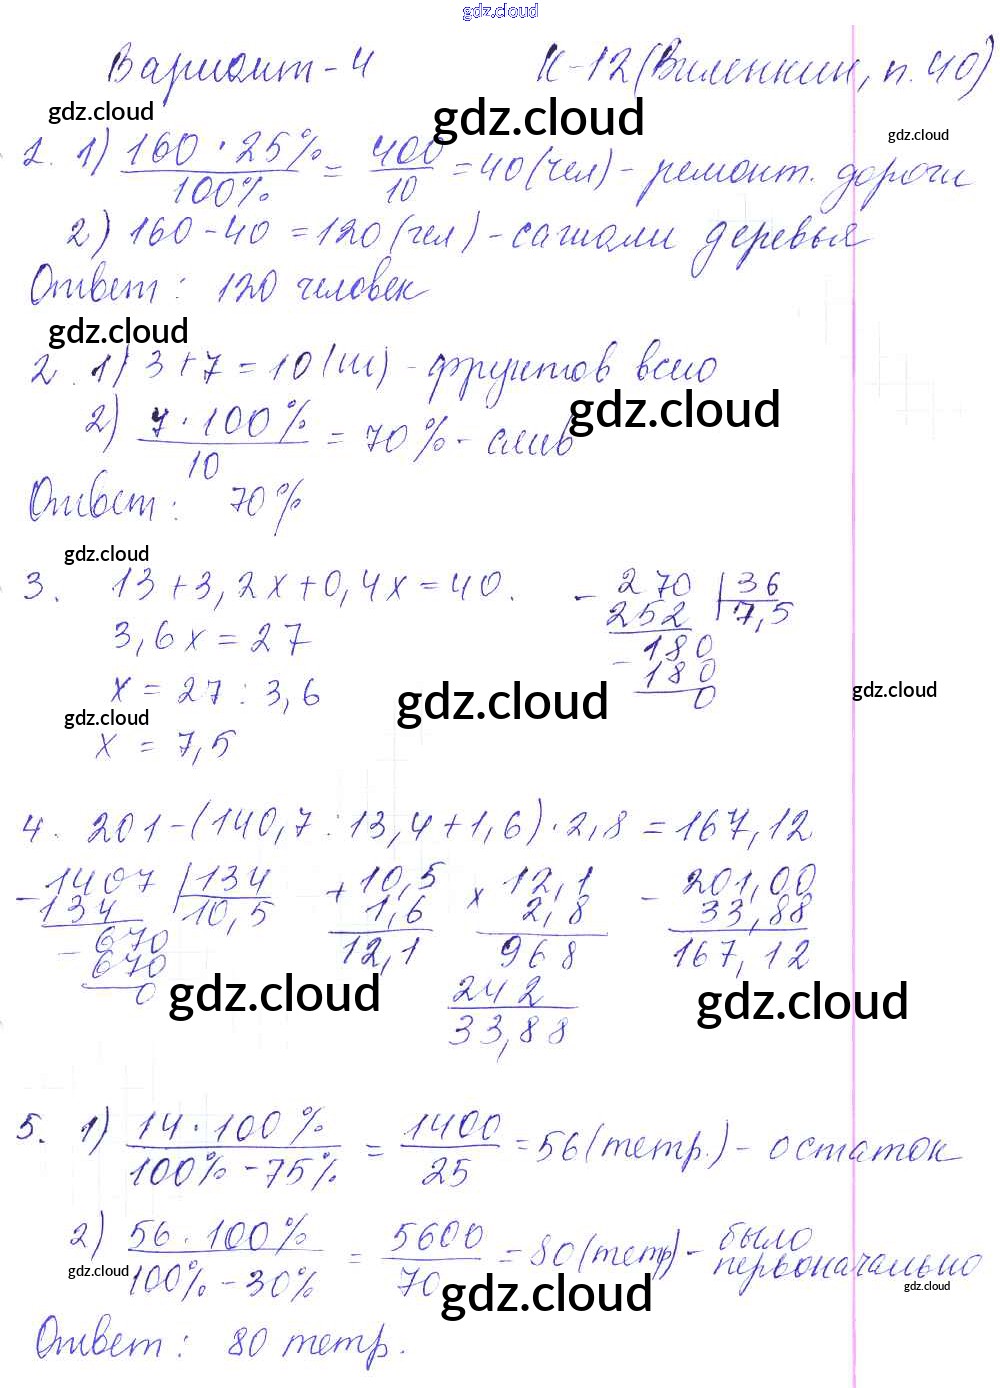 gdz.cloud
Вариант-4 К-12 (Виленкин, п. 40)
gdz.cloud gdz.cloud gdz.cloud
1. 1) 160 · 25% / 100% = 400 / 10 = 40 (чел) - ремонт. дороги
2) 160 - 40 = 120 (чел) - сажали деревья
Ответ: 120 человек
gdz.cloud
2. 1) 3 + 7 = 10 (ш) - фруктов всего
gdz.cloud
2) 7 · 100% / 10 = 70% - слив
Ответ: 70%
gdz.cloud
3. 13 + 3,2x + 0,4x = 40.
3,6x = 27
x = 27 : 3,6
x = 7,5
- 270 | 36
252 7,5
- 180
180
0
gdz.cloud gdz.cloud gdz.cloud
4. 201 - (140,7 : 13,4 + 1,6) · 2,8 = 167,12
- 1407 | 134
134 10,5
- 670
670
0
+ 10,5
1,6
12,1
× 12,1
2,8
968
242
33,88
- 201,00
33,88
167,12
gdz.cloud gdz.cloud
5. 1) 14 · 100% / 100% - 75% = 1400 / 25 = 56 (тетр.) - остаток
2) 56 · 100% / 100% - 30% = 5600 / 70 = 80 (тетр) - было первоначально
gdz.cloud gdz.cloud gdz.cloud
Ответ: 80 тетр.